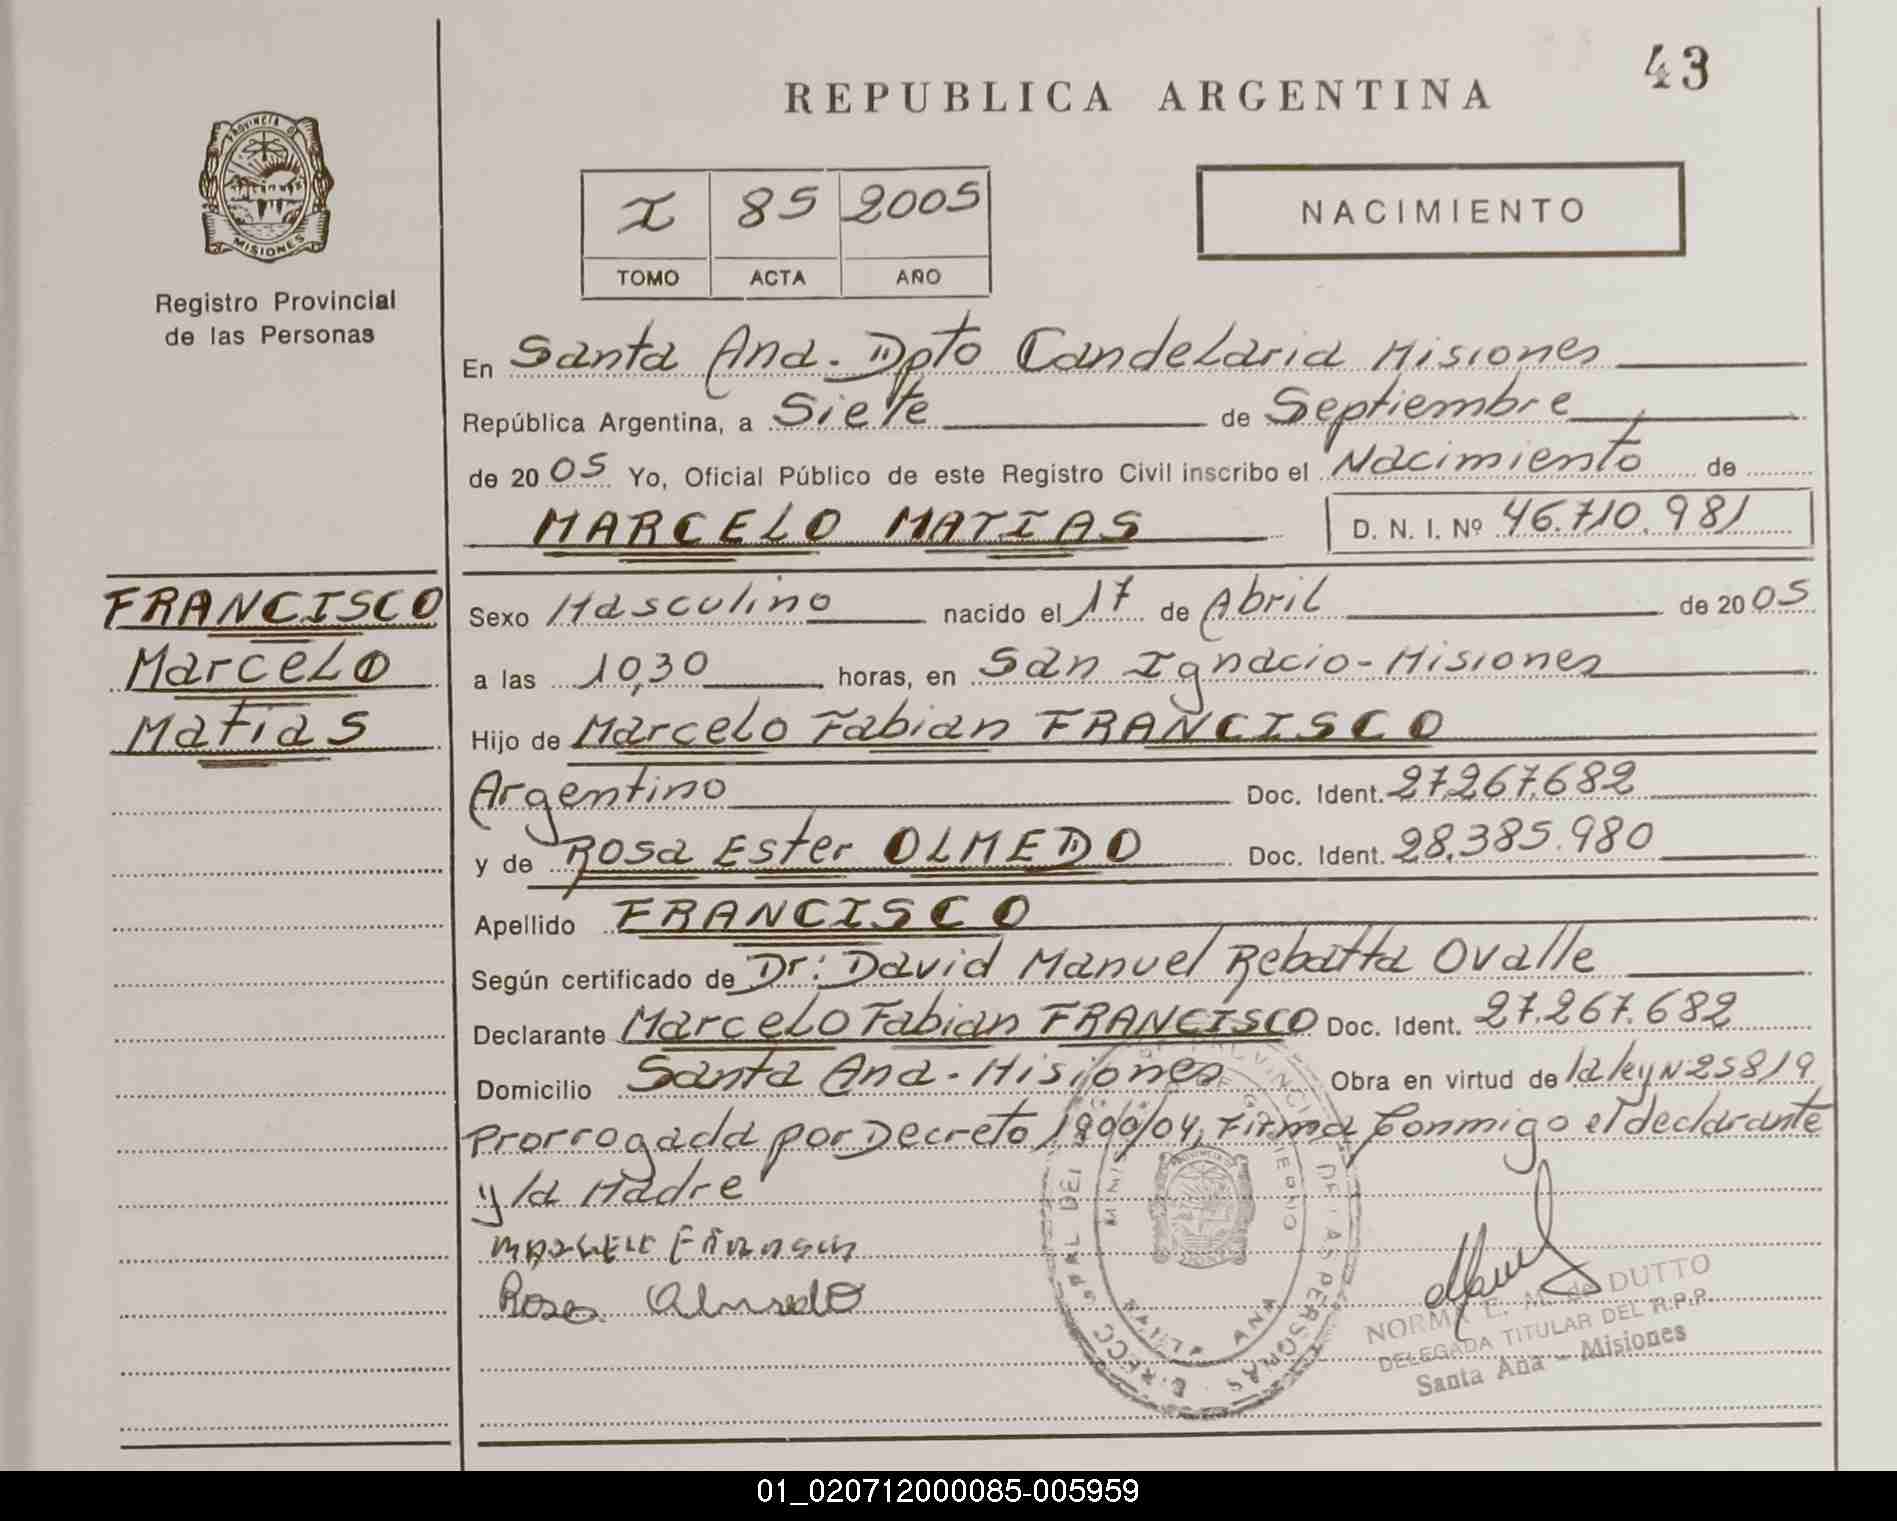 43
REPUBLICA ARGENTINA
PROVINCIA DE
MISIONES
Registro Provincial
de las Personas
I 85 2005
TOMO ACTA AÑO
NACIMIENTO
En Santa Ana. Dpto Candelaria Misiones
República Argentina, a Siete de Septiembre
de 20 05 Yo, Oficial Público de este Registro Civil inscribo el Nacimiento de
MARCELO MATIAS D. N. I. Nº 46.710.981
FRANCISCO
Marcelo
Matias
Sexo Masculino nacido el 17 de Abril de 20 05
a las 10,30 horas, en San Ignacio - Misiones
Hijo de Marcelo Fabian FRANCISCO
Argentino Doc. Ident. 27.267.682
y de Rosa Ester OLMEDO Doc. Ident. 28.385.980
Apellido FRANCISCO
Según certificado de Dr: David Manuel Rebatta Ovalle
Declarante Marcelo Fabian FRANCISCO Doc. Ident. 27.267.682
Domicilio Santa Ana - Misiones Obra en virtud de la ley Nº 25819
Prorrogada por Decreto 1900/04, Firma Conmigo el declarante
y la Madre
Rosa Olmedo
SANTA ANA
NORMA E. M. de DUTTO
DELEGADA TITULAR DEL R.P.P.
Santa Ana - Misiones
01_020712000085-005959